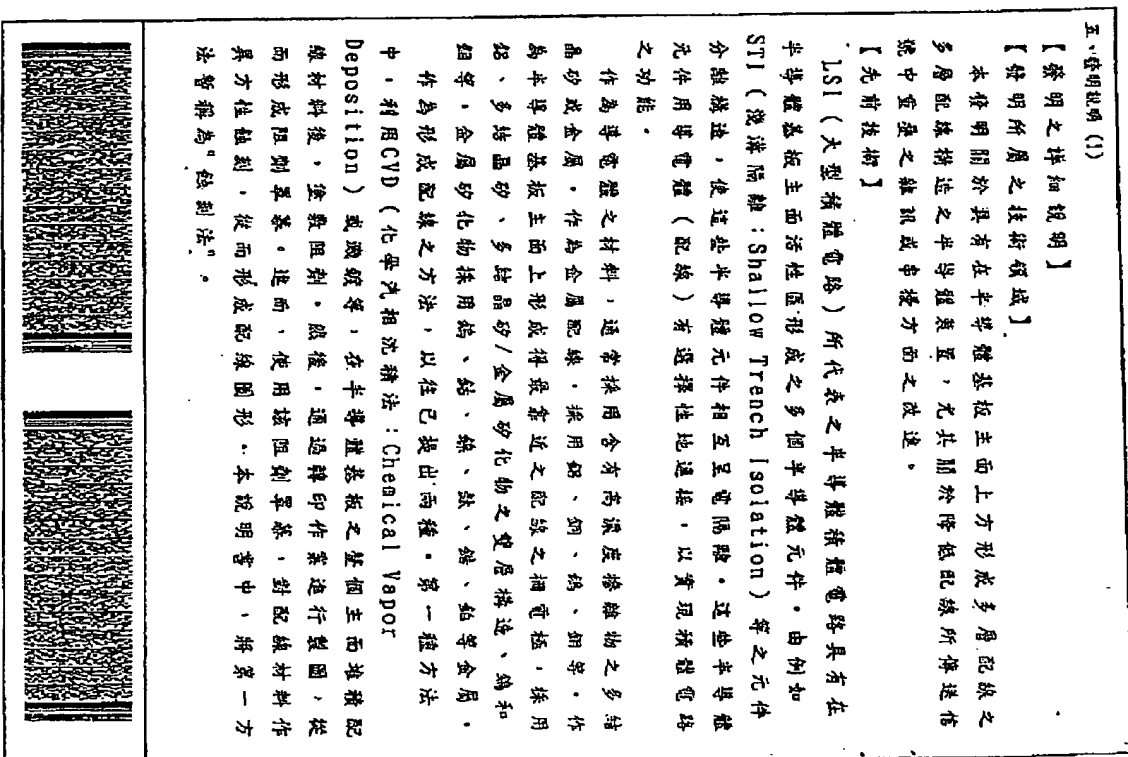 五、發明說明 (1)
【發明之詳細說明】
【發明所屬之技術領域】
本發明關於具有在半導體基板主面上方形成多層配線之
多層配線構造之半導體裝置，尤其關於降低配線所傳送信
號中重疊之雜訊或串擾方面之改進。
【先前技術】
LSI（大型積體電路）所代表之半導體積體電路具有在
半導體基板主面活性區形成之多個半導體元件。由例如
STI（淺溝隔離：Shallow Trench Isolation）等之元件
分離構造，使這些半導體元件相互呈電隔離。這些半導體
元件用導電體（配線）有選擇性地連接，以實現積體電路
之功能。
作為導電體之材料，通常採用含有高濃度摻雜物之多結
晶矽或金屬。作為金屬配線，採用鋁、銅、鎢、鉬等。作
為半導體基板主面上形成得最靠近之配線之柵電極，採用
鋁、多結晶矽、多結晶矽/金屬矽化物之雙層構造、鎢和
鉬等。金屬矽化物採用鎢、鈷、鎳、鈦、鋯、鉑等金屬。
作為形成配線之方法，以往已提出兩種。第一種方法
中，利用CVD（化學汽相沈積法：Chemical Vapor
Deposition）或濺鍍等，在半導體基板之整個主面堆積配
線材料後，塗敷阻劑。然後，通過轉印作業進行製圖，從
而形成阻劑罩幕。進而，使用該阻劑罩幕，對配線材料作
異方性蝕刻，從而形成配線圖形。本說明書中，將第一方
法暫稱為"蝕刻法"。